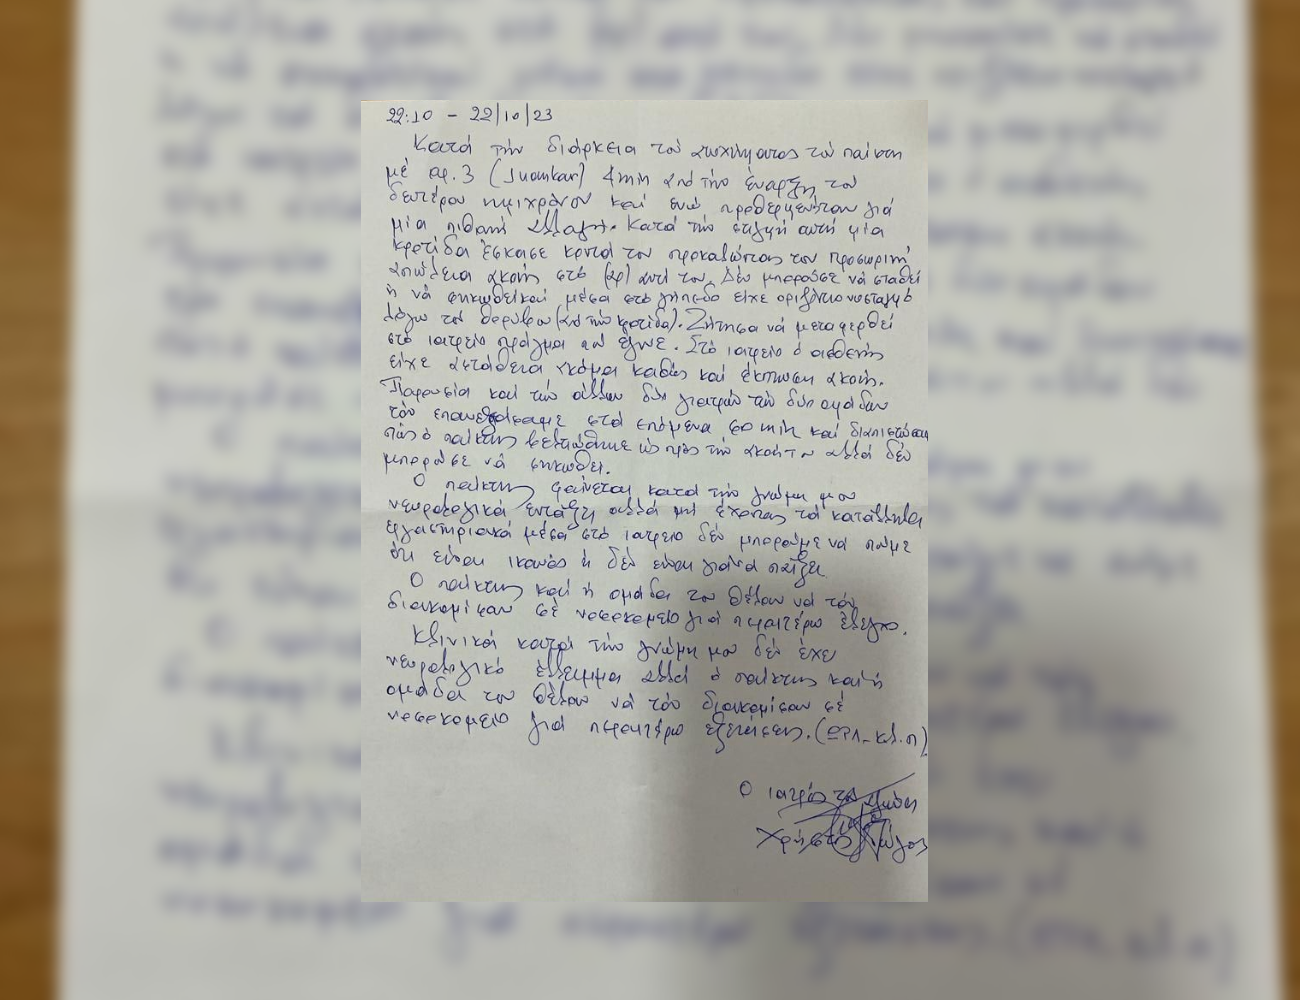 22:10 - 22/10/23
Κατά την διάρκεια του ατυχήματος του παίκτη
με αρ. 3 (Juankar) 4 min από την έναρξη του
δευτέρου ημιχρόνου και ενώ προθερμενόταν για
μία πιθανή αλλαγή. Κατά την στιγμή αυτή μία
κροτίδα έσκασε κοντά του προκαλώντας του προσωρινή
απώλεια ακοής στο (αρ) αυτί του. Δεν μπορούσε να σταθεί
ή να σηκωθεί και μέσα στο γήπεδο είχε οριζόντιο νυσταγμό
λόγω του θορύβου (από την κροτίδα). Ζήτησα να μεταφερθεί
στο ιατρείο πράγμα που έγινε. Στο ιατρείο ο ασθενής
είχε αστάθεια ακόμα καθώς και έκπτωση ακοής.
Παρουσία και των άλλων δύο γιατρών των δύο ομάδων
τον επανεξετάσαμε στα επόμενα min και διαπιστώσαμε
πως ο παίκτης βελτιώθηκε ως προς την ακοή του αλλά δεν
μπορούσε να σηκωθεί.
Ο παίκτης φαίνεται κατά την γνώμη μου
νευρολογικά εντάξη αλλά μη έχοντας τα κατάλληλα
εργαστηριακά μέσα στο ιατρείο δεν μπορούμε να πούμε
ότι είναι ικανός ή δεν είναι για να παίξει
Ο παίκτης και η ομάδα του θέλουν να τον
διακομίσουν σε νοσοκομείο για περαιτέρω έλεγχο.
Κλινικά κατά την γνώμη μου δεν έχει
νευρολογικό έλλειμμα αλλά ο παίκτης και η
ομάδα του θέλουν να τον διακομίσουν σε
νοσοκομείο για περαιτέρω εξετάσεις. (ΩΡΛ - κλ.π)
Ο ιατρός του αγώνα
Χρήστος